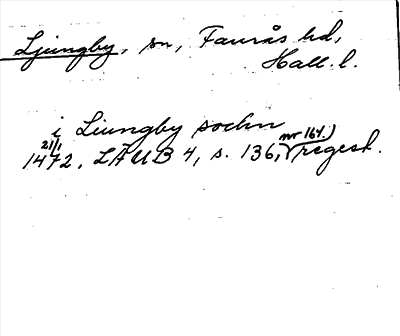 Ljungby, sn, Faurås hd,
Hall. l.
i Liungby sochn
21/1 nr 164.)
1472, LÄUB 4, s. 136, regest.